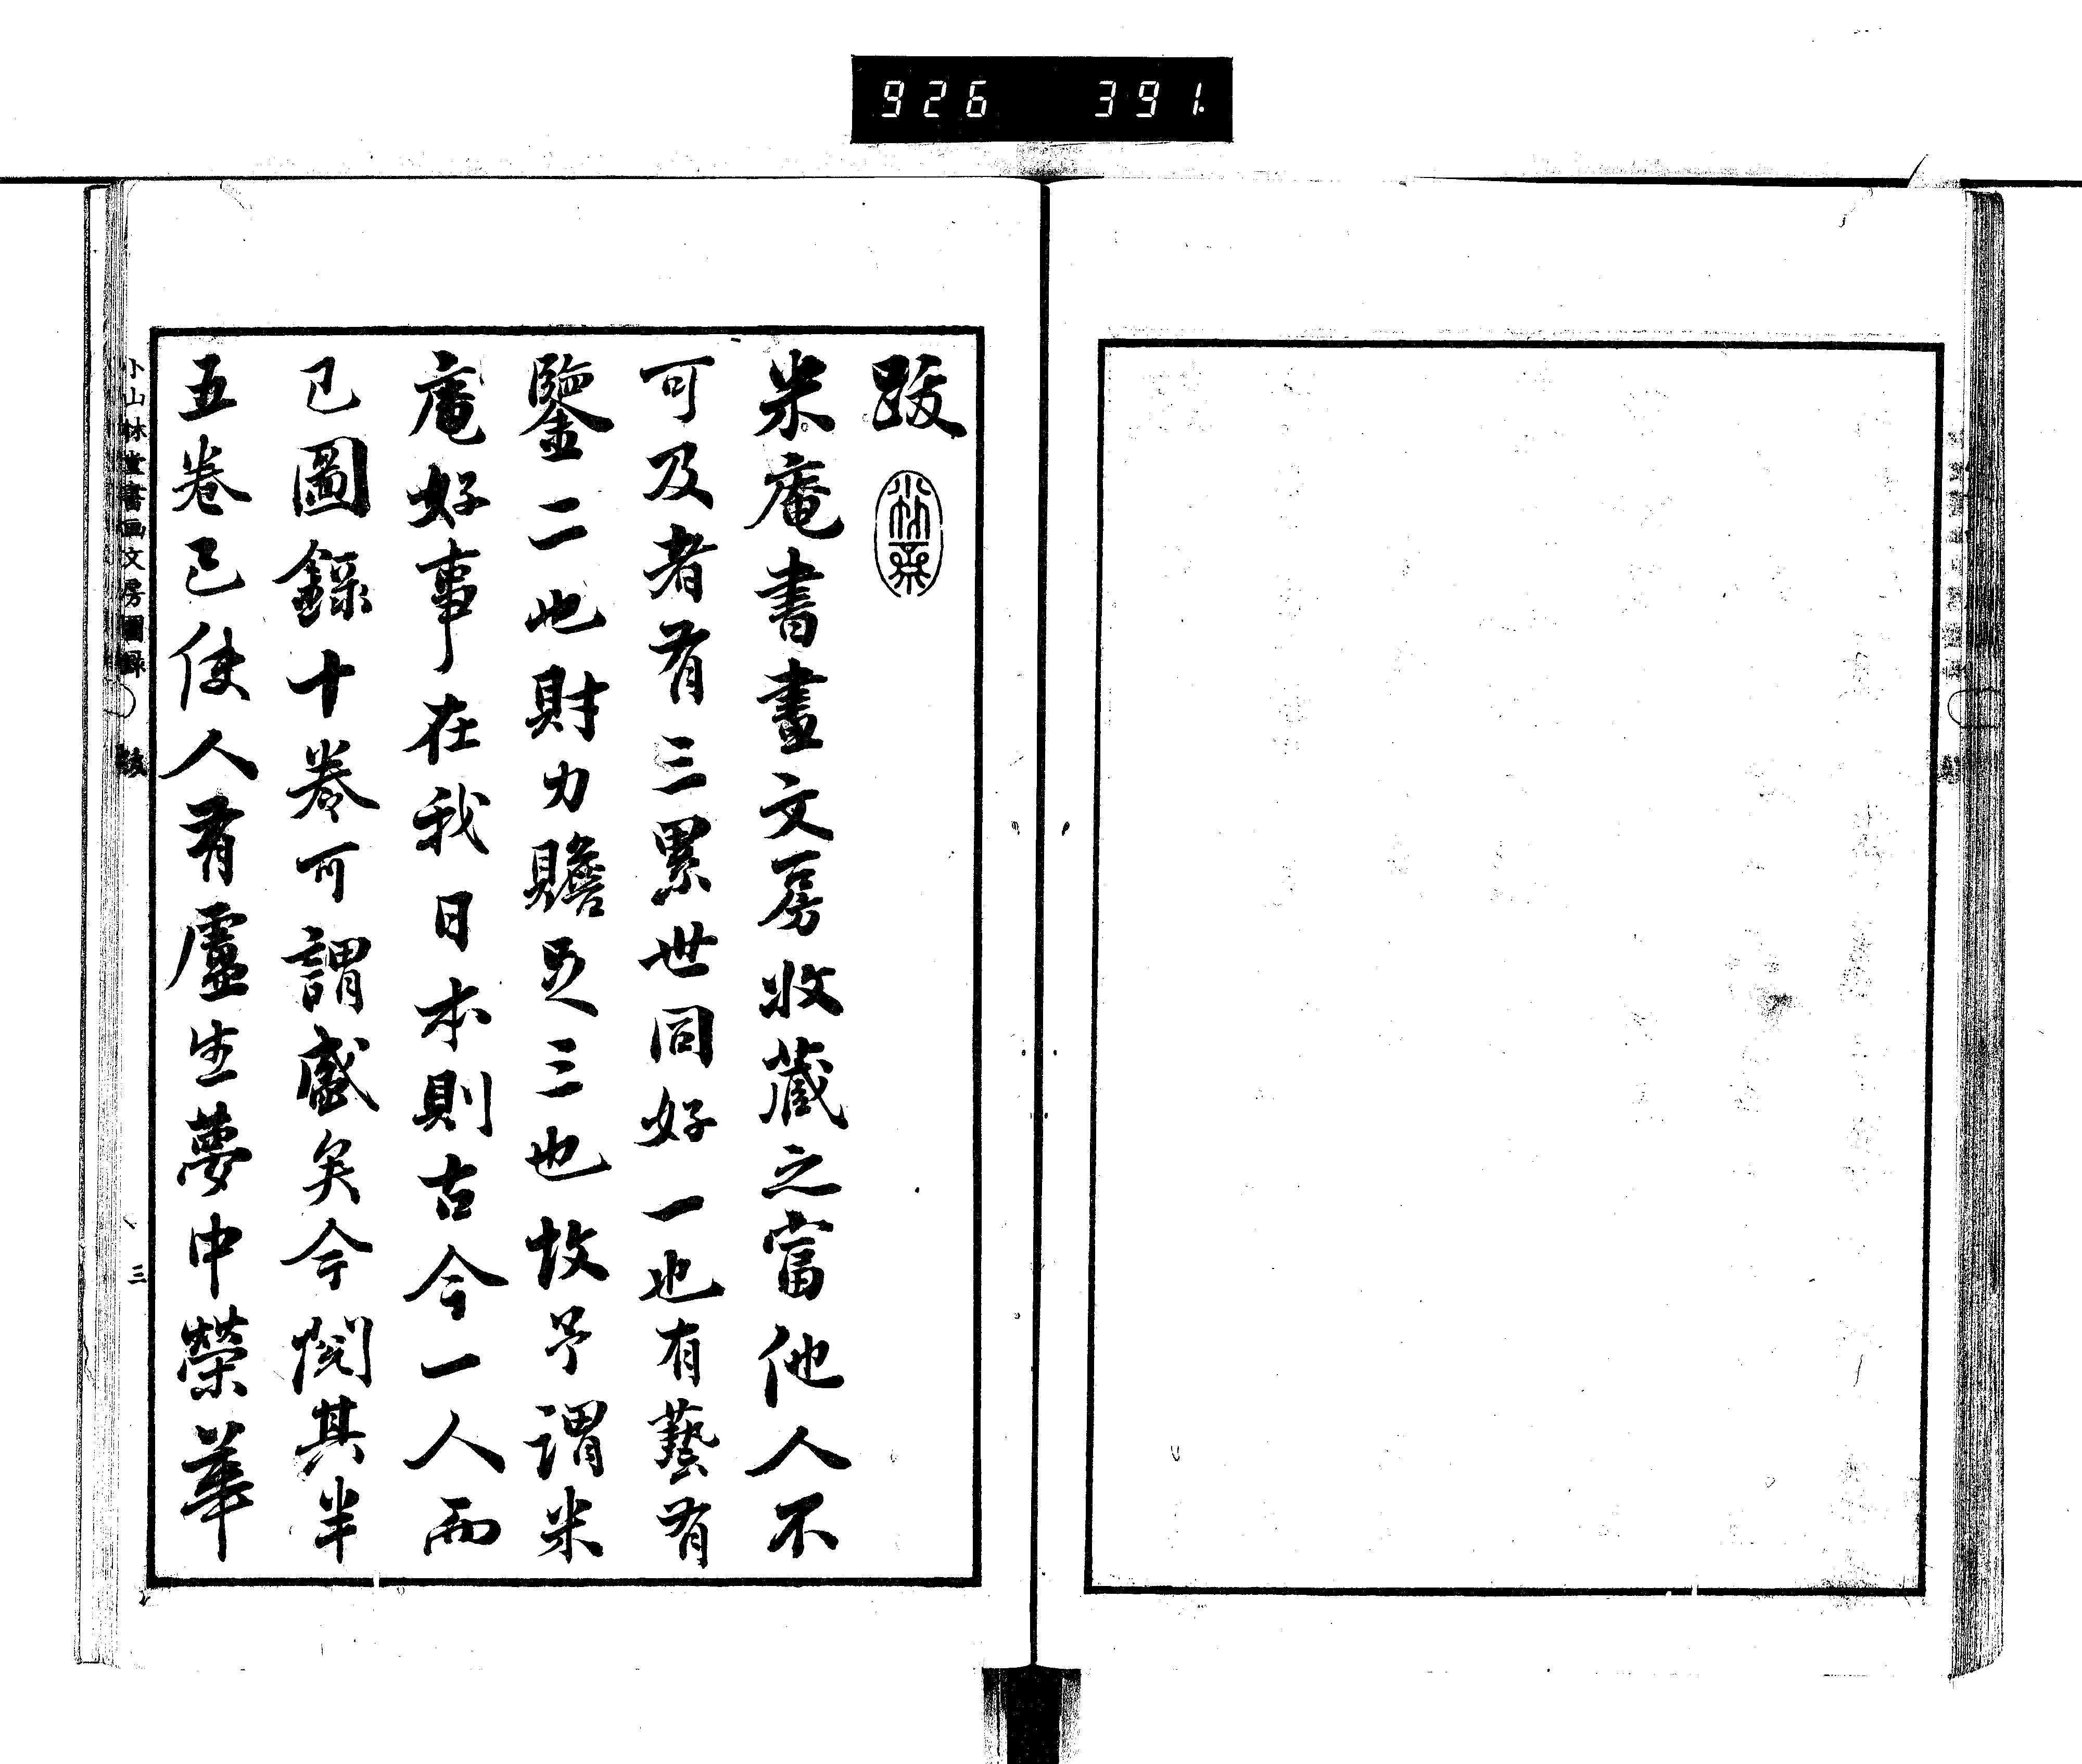 926 391.
跋
米庵書畫文房收藏之富他人不
可及者有三累世同好一也有藝有
鑒二也財力贍足三也故予謂米
庵好事在我日本則古今一人而
已圖錄十卷可謂盛矣今閱其半
五卷已使人有盧生夢中榮華
小山林堂書画文房圖録 跋 三